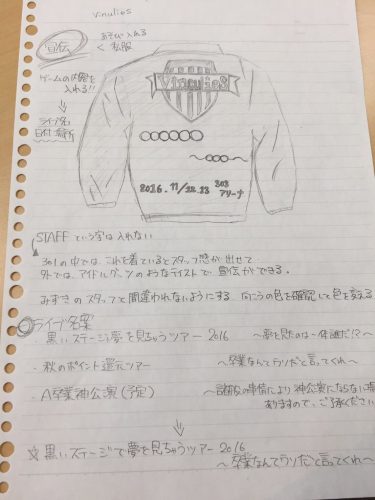 vinulies
宣伝
あそび入れる
く 私服
ゲームの内容を
入れる!!
ライブ名
日付 場所
VinulieS
〇〇〇〇〇〇
～〇〇〇～
2016. 11/12.13 303
アリーナ
STAFF という字は入れない
301の中では、これを着ているとスタッフ感が出せて
外では、アイドルグッズのようなテイストで、宣伝ができる。
みずきのスタッフと間違われないようにする 向こうの色を確認して色を変える
◎ライブ名案
・黒いステージで夢を見ちゃうツアー 2016 ～夢を見たのは一体誰だ!?～
・秋のポイント還元ツアー ～卒業なんてウソだと言ってくれ～
・A卒業神公演(予定) ～諸般の事情により神公演にならない事
ありますので、ご了承ください
☆黒いステージで夢を見ちゃうツアー 2016
～卒業なんてウソだと言ってくれ～